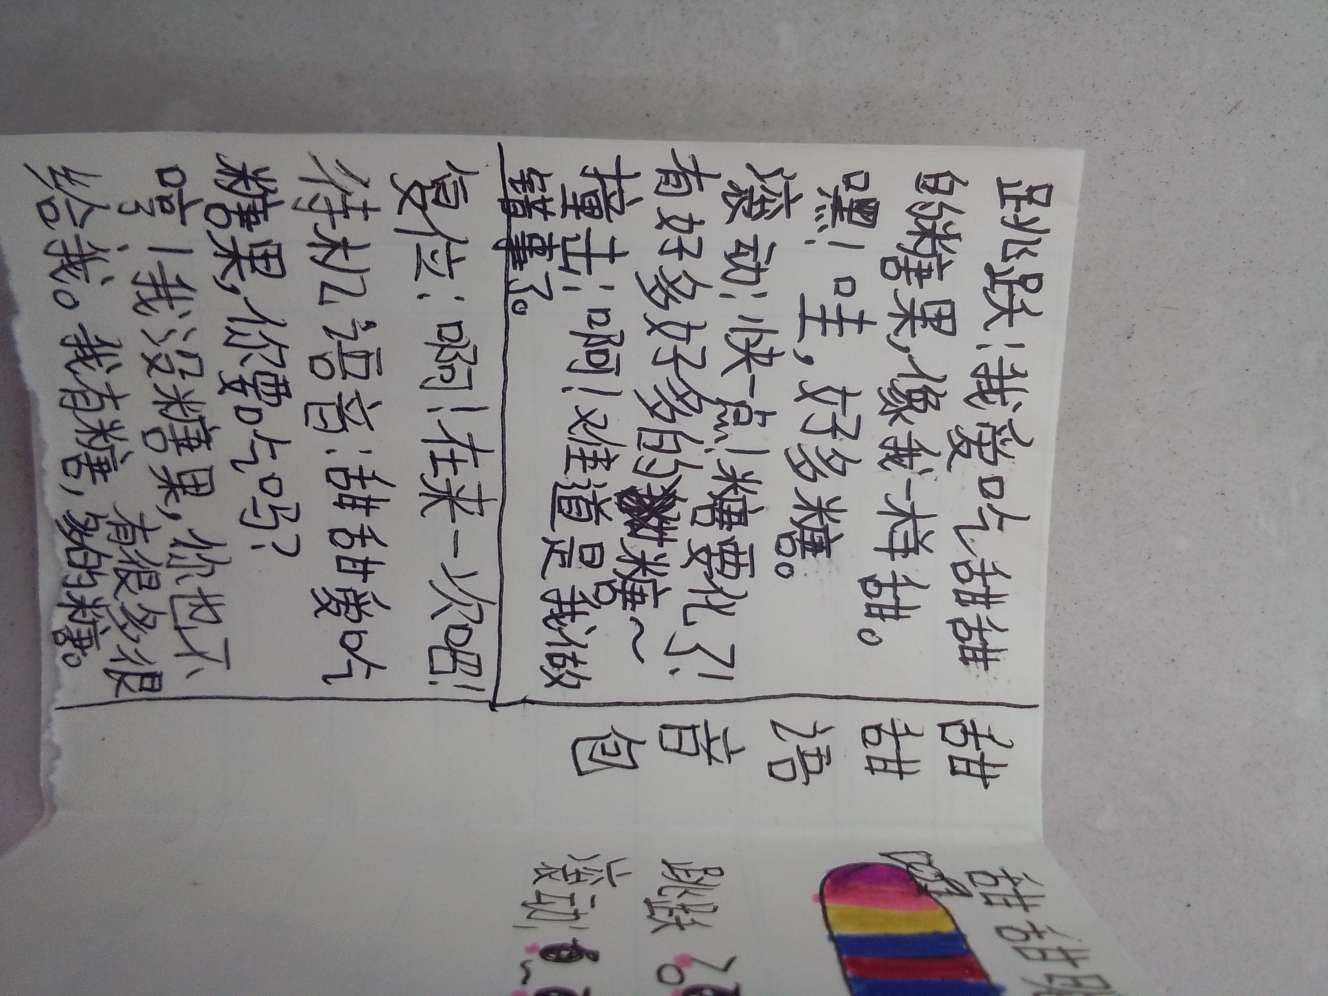 跳跃:我爱吃甜甜
的糖果,像我一样甜。
嘿!哇,好多糖。
滚动:快一点!糖要化了!
有好多好多的糖~
撞击:啊!难道是我做
错事了。
复位:啊!在来一次吧!
待机语音:甜甜爱吃
糖果,你要吃吗?
哼!我没糖果,你也不
给我。我有糖,有很多很
多的糖。
甜
甜
语
音
包
甜甜
跳跃
滚动